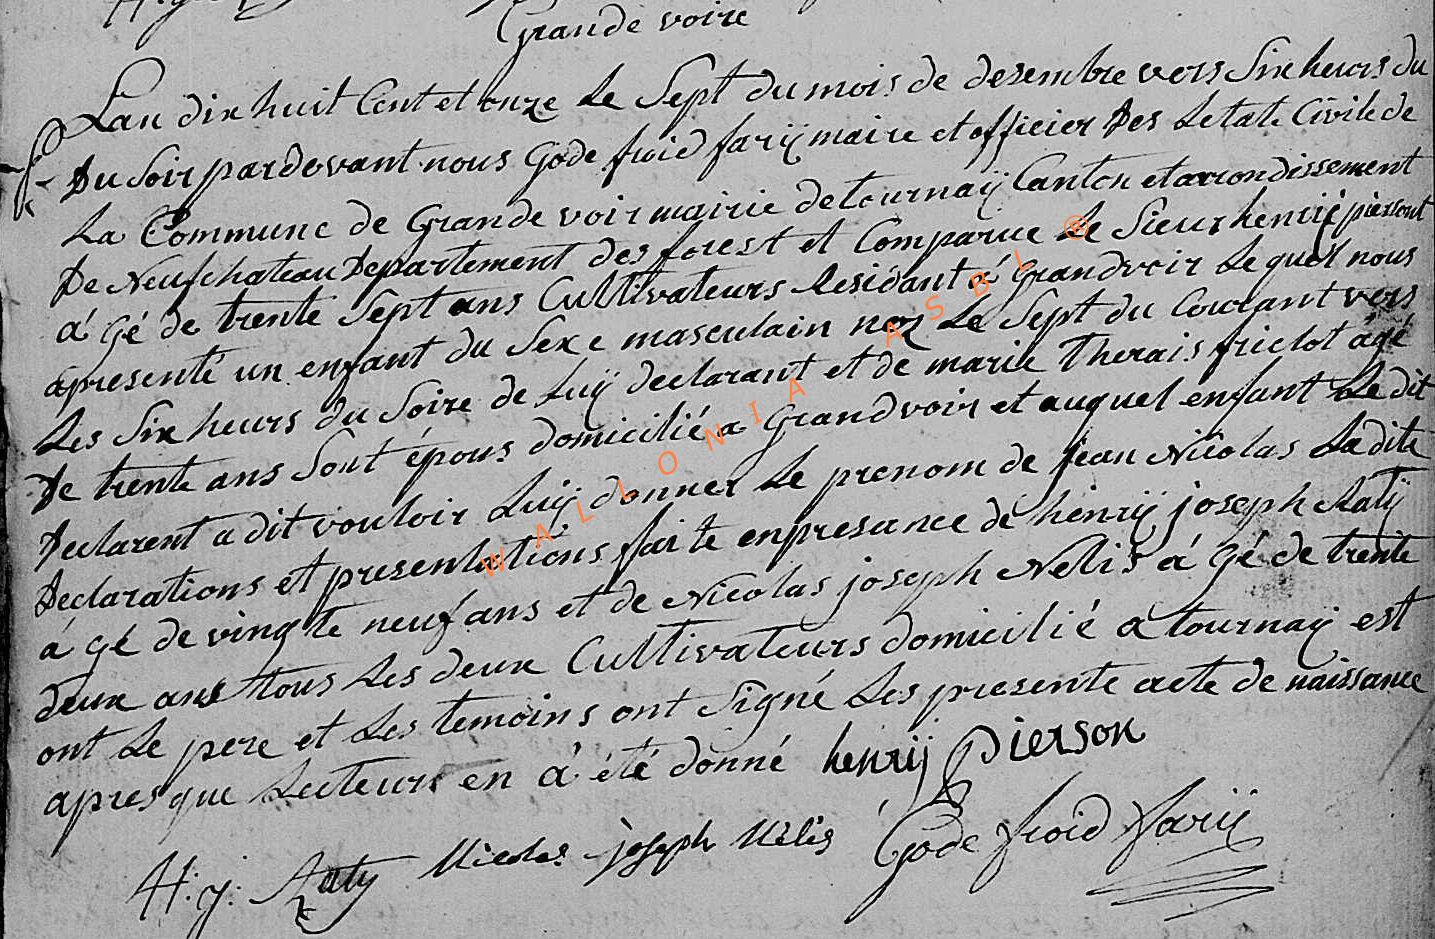 Grande voire
Lan dix huit Cent et onze Le Sept du mois de desembre vers Six heurs du
Du Soir pardevant nous Gode froid farÿ maire et officier Des Letate Civile de
La Commune de Grande voir mairie de tournaÿ Canton et arrondissement
De Neufchateau Departement des forest et Comparue Le Sieur henrÿ pierront
á Gé de trente Sept ans Cultivateurs Residant á Grandvoir Le quel nous
apresenté un enfant du Sexe masculain nez Le Sept du Courant vers
Les Six heurs du Soire de Luÿ declarant et de marie Therais friclot agé
De trente ans Sont épous domicilié a Grandvoir et auquel enfant Le dit
Declarent a dit vouloir Luÿ donner Le prenom de jean Nicolas Ladite
Declarations et presentations faite enpresance de henrÿ joseph Ratÿ
á gé de vingte neuf ans et de Nicolas joseph Nelis á Gé de trente
deux ans tous Les deux Cultivateurs domicilié a tournaÿ est
ont Le pere et Les temoins ont Signé Les presente acte de naissance
apres que Lecteurs en á été donné henrÿ Pierson
H: j: Raty Nicolas joseph Nélis Gode froid farÿ
WALLONIA ASBL ®